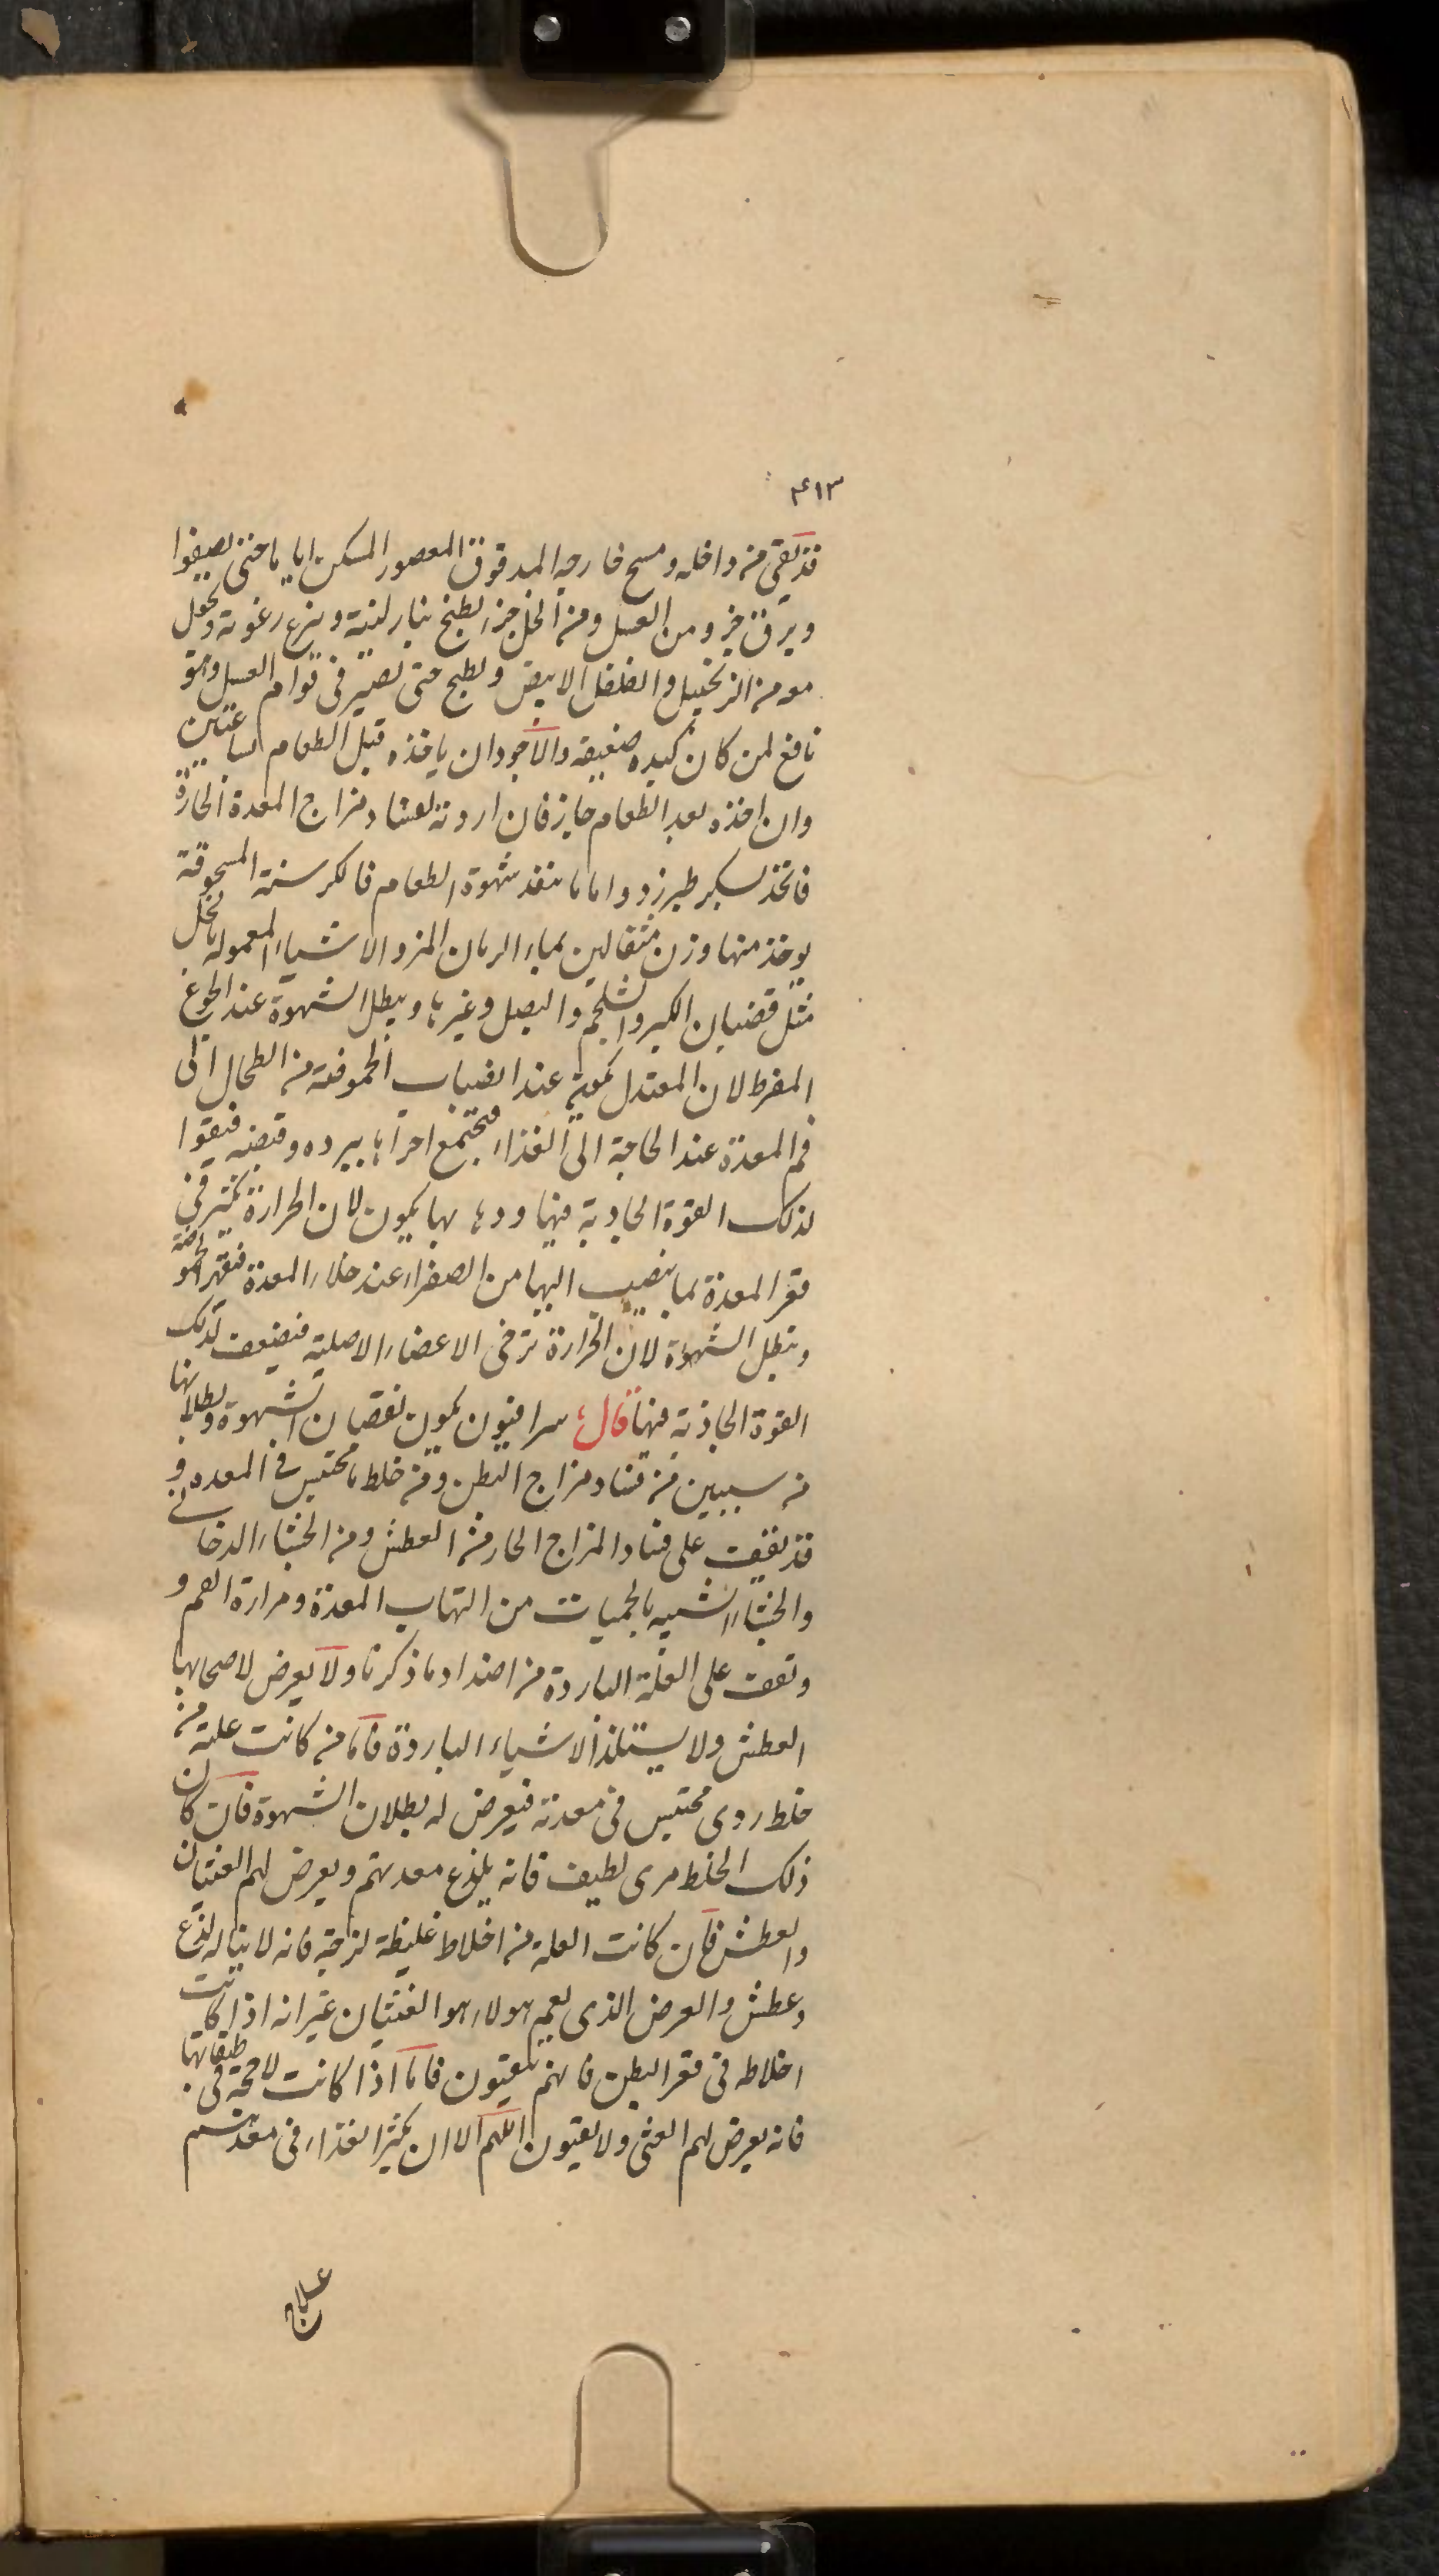 ٤١٣
قد نقى من داخله ومسح خارجه المدقوق المعصور المسكن اياما حتى يصفوا
ويرق جزو ومن العسل ومن الخل جزء يطبخ بنار لينة وينزع رغوته ويجعل
معه من الزنجبيل والفلفل الابيض ويطبخ حتى يصير فى قوام العسل وهو
نافع لمن كان كبده ضعيفة والاجود ان ياخذه قبل الطعام بساعتين
وان اخذه بعد الطعام جايز فان اردته لفساد مزاج المعدة الحارة
فاتخذ بسكر طبرزد واما ما ينفذ شهوة الطعام فالكرسنة المسحوقة
يوخذ منها وزن مثقالين بماء الرمان المز والاشياء المعمولة بالخل
مثل قضبان الكبر والشلجم والبصل وغيرها ويبطل الشهوة عند الجوع
المفرط لان المعتدل يكون عند انصباب الحموضة من الطحال الى
فم المعدة عند الحاجة الى الغذاء فتجتمع اجزاها ببرده وقبضه فيقوا
لذلك القوة الجاذبة فيها ودها بها يكون لان الحرارة تكثر فى
قعر المعدة بما ينصب اليها من الصفراء عند خلاء المعدة فيقهر الحموضة
وتبطل الشهوة لان الحرارة ترخى الاعضاء الاصلية فيضعف لذلك
القوة الجاذبة فيها قال سرافيون يكون نقصان الشهوة وبطلانها
من سببين من فساد مزاج البطن ومن خلط ما محتبس فى المعده و
قد يقف على فساد المزاج الحار من العطش ومن الجشاء الدخانى
والجشاء الشبيه بالحميات من التهاب المعدة ومرارة الفم و
وتقف على العلة الباردة من اضداد ما ذكرنا ولا يعرض لاصحابها
العطش ولا يستلذ الاشياء الباردة فاما من كانت علته من
خلط ردى محتبس فى معدته فيعرض له بطلان الشهوة فان كان
ذلك الخلط مرى لطيف فانه يلذع معدتهم ويعرض لهم الغثيان
والعطش فان كانت العلة من اخلاط غليظة لزجة فانه لا يناله لذع
وعطش والعرض الذى يعم هولاء هو الغثيان غير انه اذا كانت
اخلاطه فى قعر البطن فانهم يتقيون فاما اذا كانت لاحجة فى طبقاتها
فانه يعرض لهم الغثى ولا يقيون اللهم الا ان يكثر الغذاء فى معدتهم
علاج